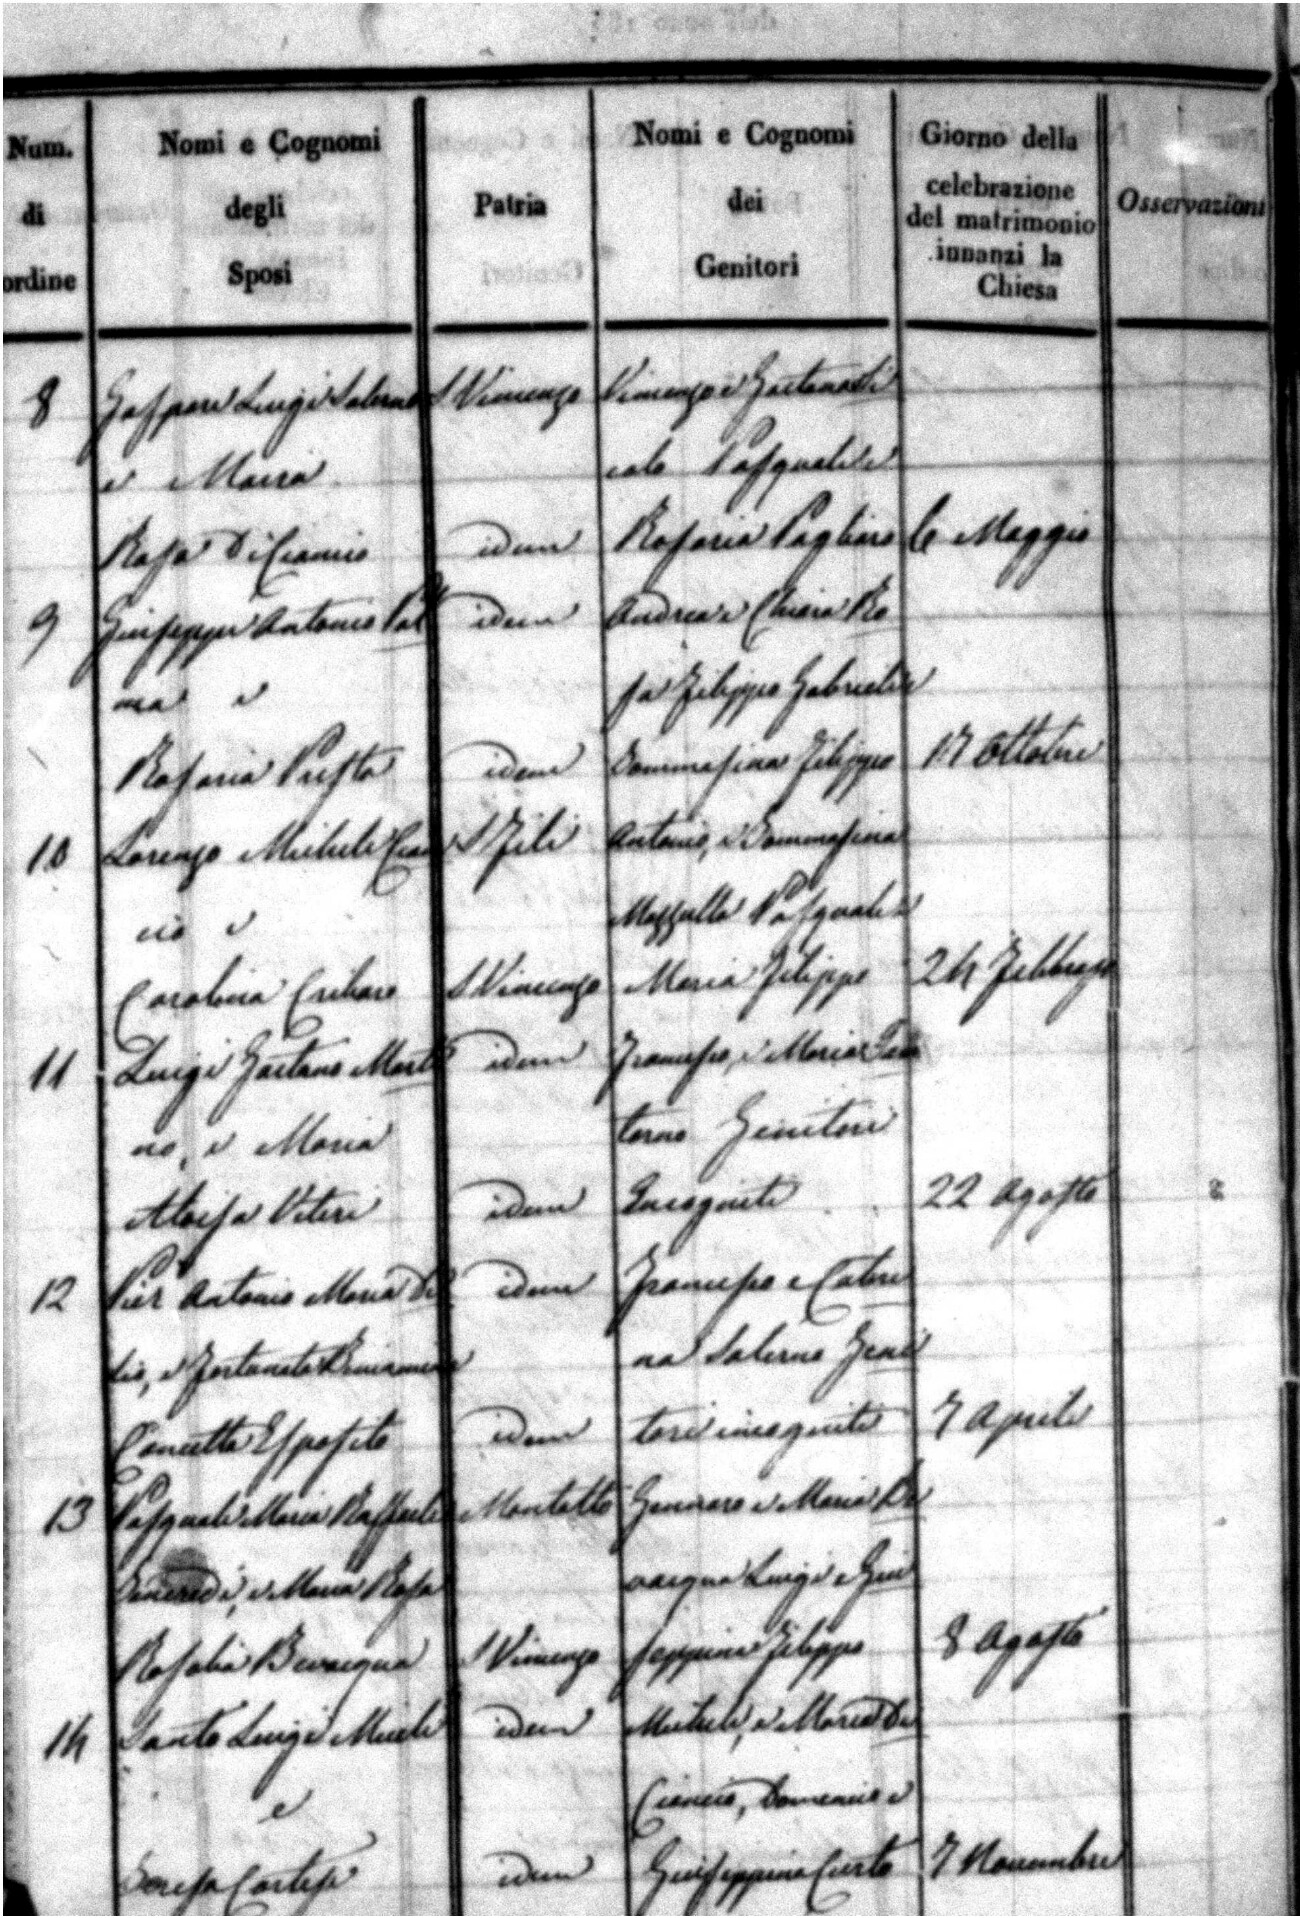 Num. di ordine
Nomi e Cognomi degli Sposi
Patria
Nomi e Cognomi dei Genitori
Giorno della celebrazione del matrimonio innanzi la Chiesa
Osservazioni
8 Gaspare Luigi Salerno S Vincenzo Vincenzo e Gaetana
e Maria Pasquale e
Rosa Di Ciancio idem Rosaria Pagliaro 6 Maggio
9 Giuseppe Antonio Pal idem Andrea e Chiara Ro
ma e sa Filippo Gabriele e
Rosaria Presta idem Tommasina Filippo 17 Ottobre
10 Lorenzo Michele Cian S Fili Antonio, e Tommasina
cio e Mazzulla Pasquale e
Carolina Cribaro S Vincenzo Maria Filippo 24 Febbrajo
11 Luigi Gaetano Marti idem Francesco, e Maria
no, e Maria Genitori
Aloisa Viteri idem Incogniti 22 Agosto
12 Pier Antonio Maria idem Francesco e Cateri
e Fortunata na Salerno Geni
Concetta Esposito idem tori incogniti 7 Aprile
13 Pasquale Maria Raffaele Montalto Gennaro e Maria Be
e Maria Rosa vacqua Luigi e Giu
Rosalia Bevacqua S Vincenzo seppina Filippo 8 Agosto
14 Santo Luigi Miceli idem Michele, e Maria Di
e Ciancio, Domenico e
Teresa Cortese idem Giuseppina Curto 7 Novembre